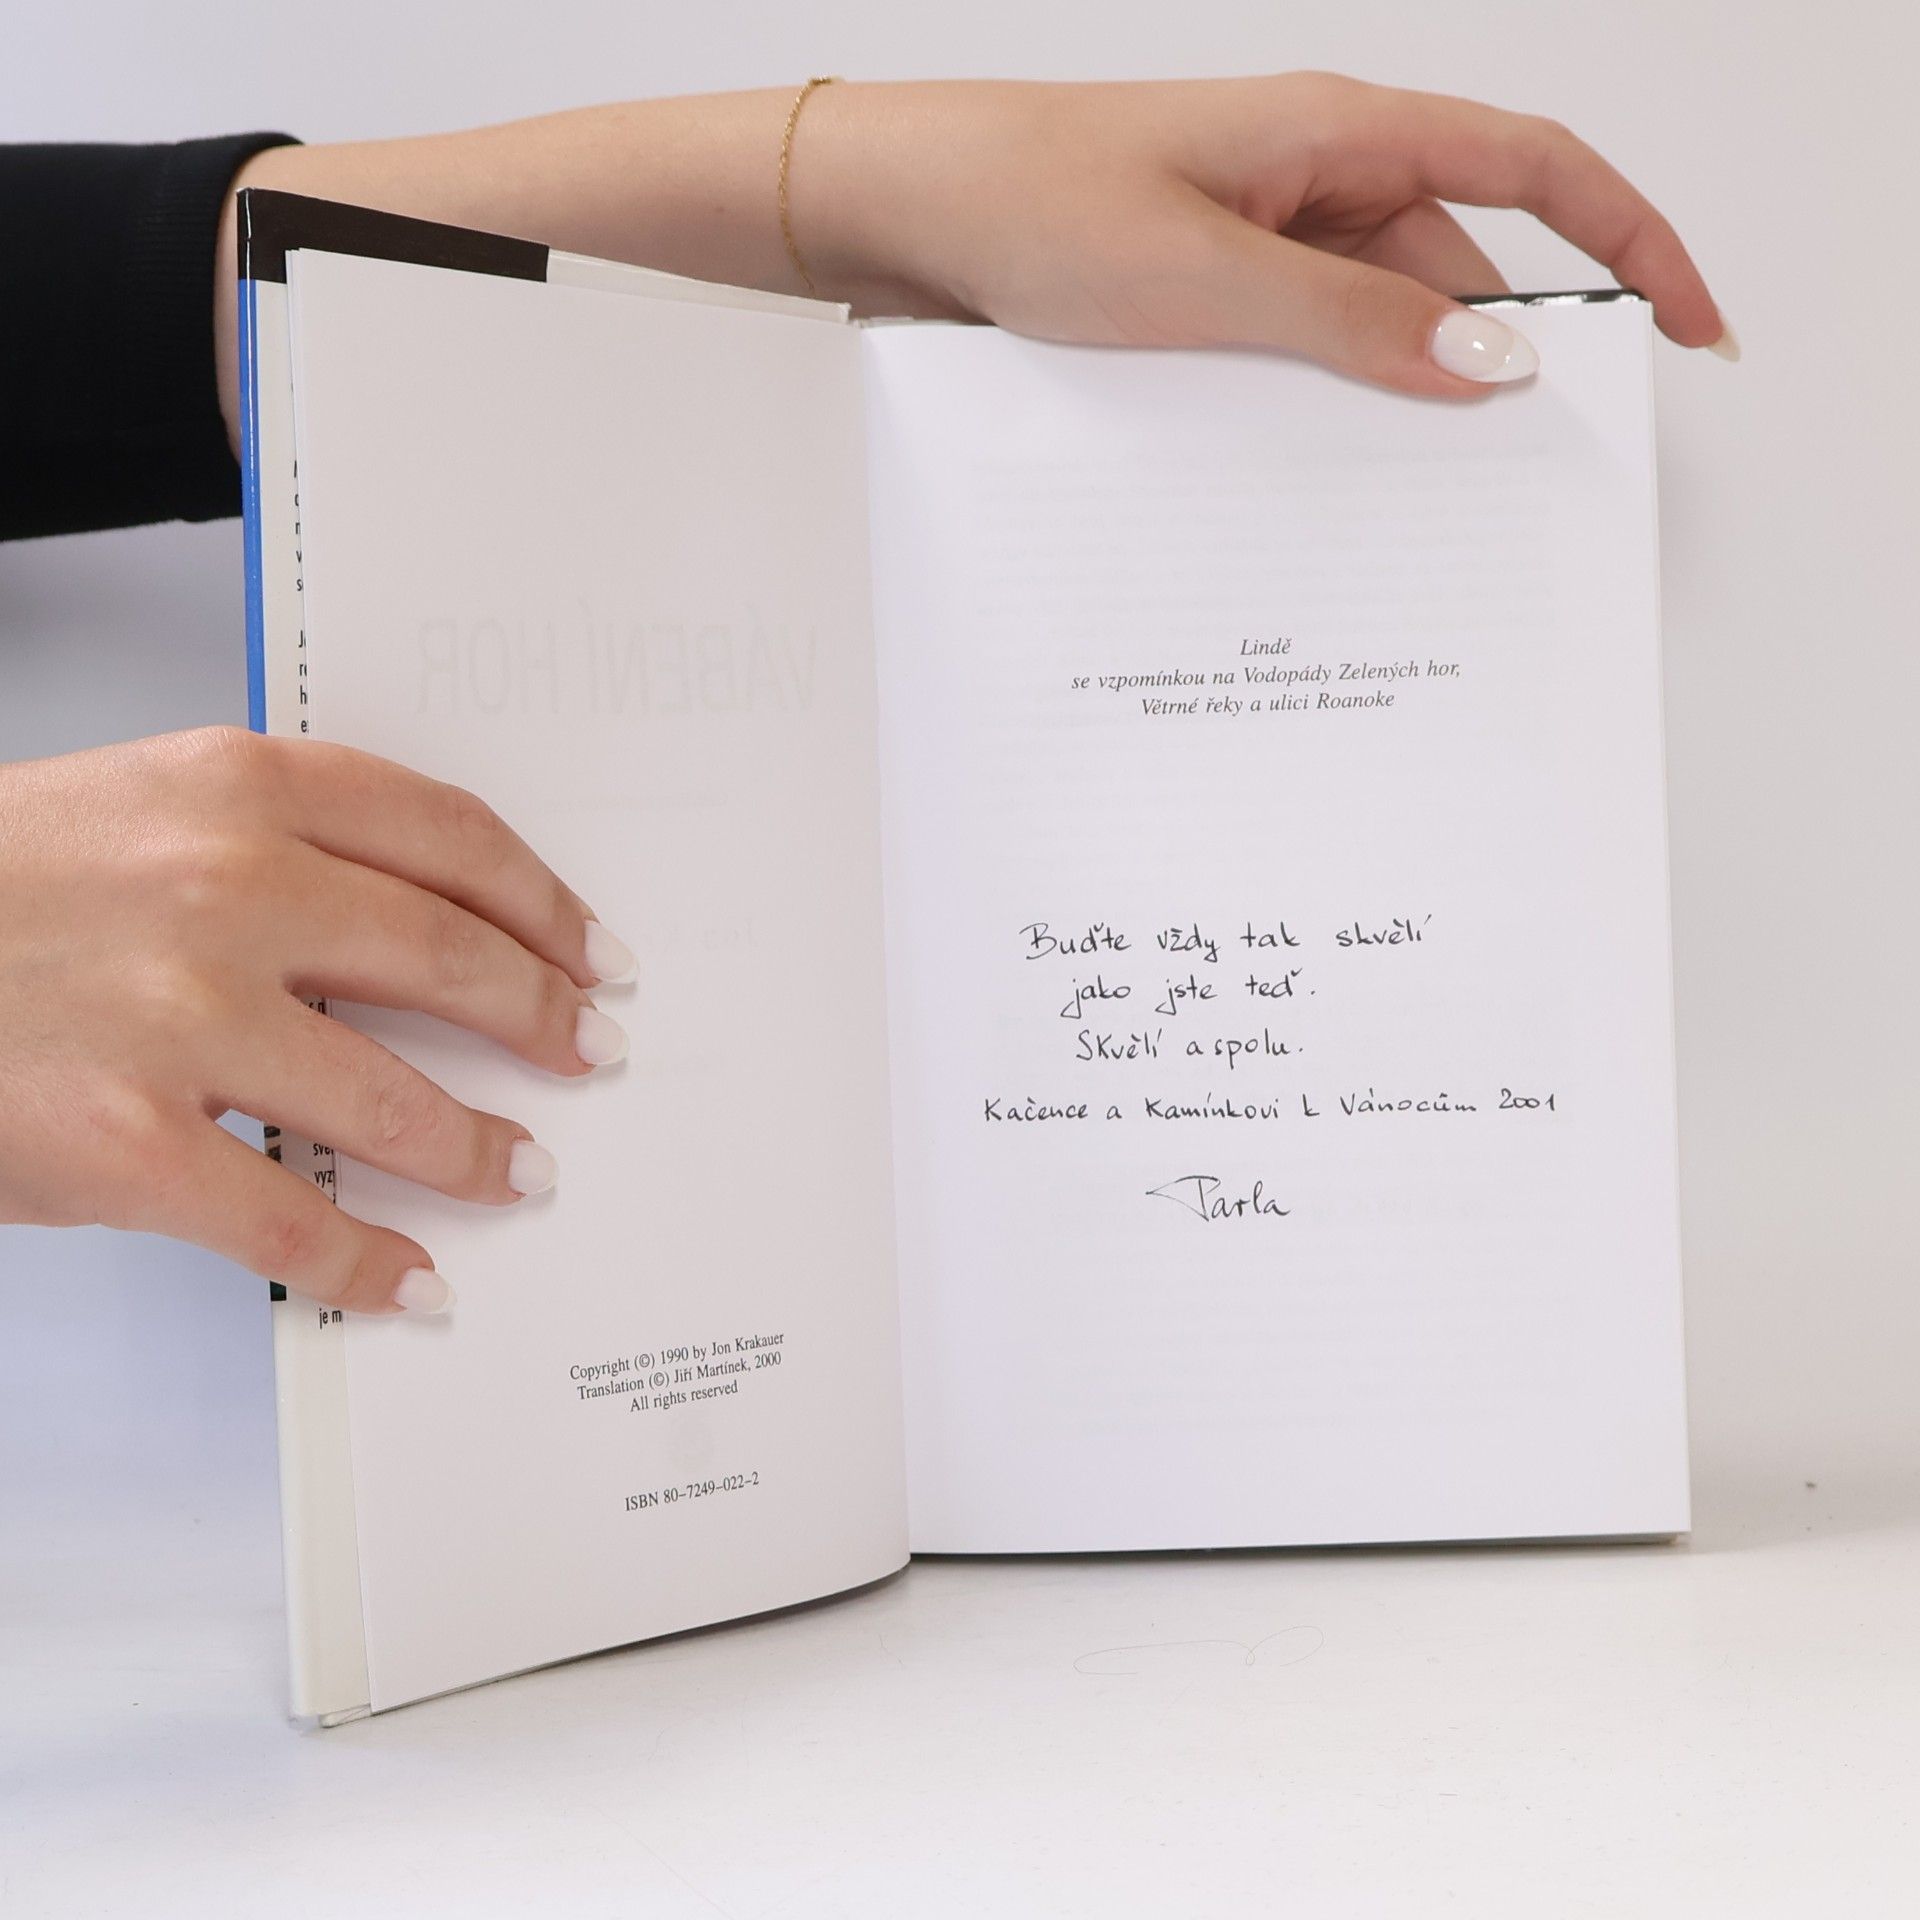 VÁBENÍ HOR
Copyright (©) 1990 by Jon Krakauer
Translation (©) Jiří Martínek, 2000
All rights reserved
ISBN 80–7249–022–2
je m
Lindě
se vzpomínkou na Vodopády Zelených hor,
Větrné řeky a ulici Roanoke
Buďte vždy tak skvělí
jako jste teď.
Skvělí a spolu.
Kačence a Kamínkovi k Vánocům 2001
Parla